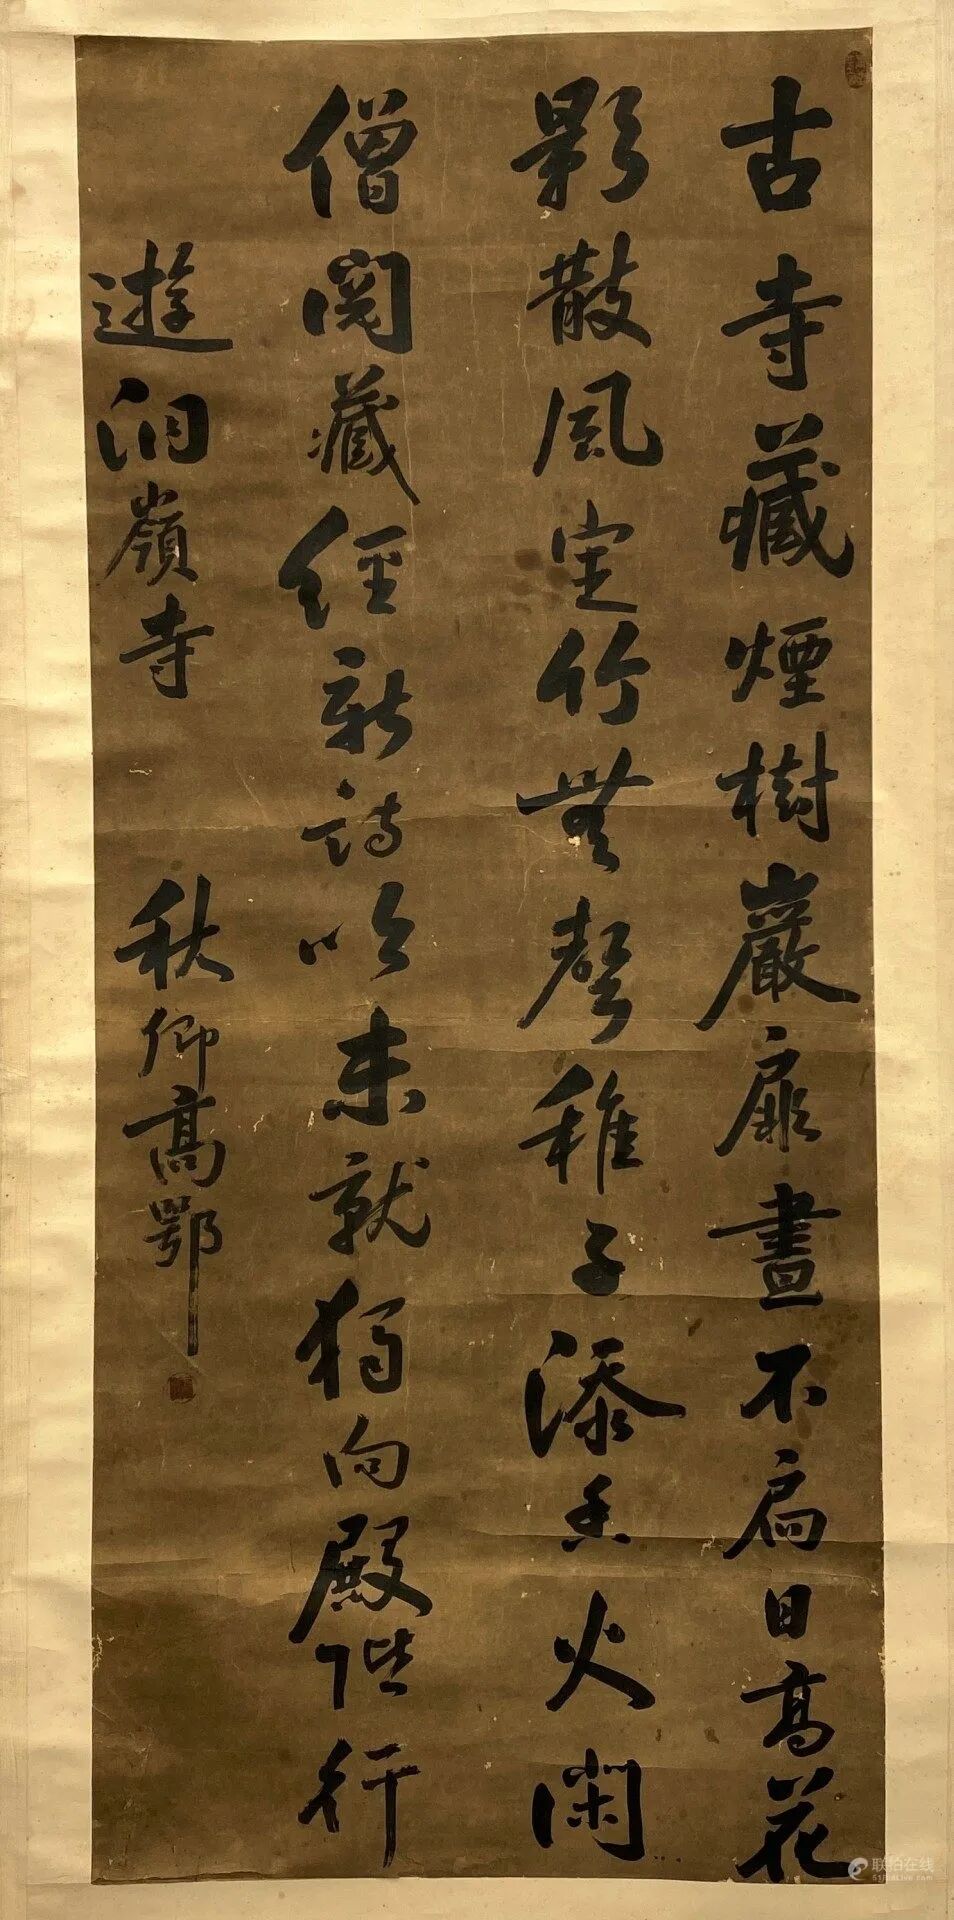 古寺藏煙樹巖扉晝不扃日高花
影散風定竹無聲稚子添香火閑
僧閱藏經新詩吟未就獨向殿階行
遊 嶺寺 秋卿高鄂
联拍在线
51bidlive.com